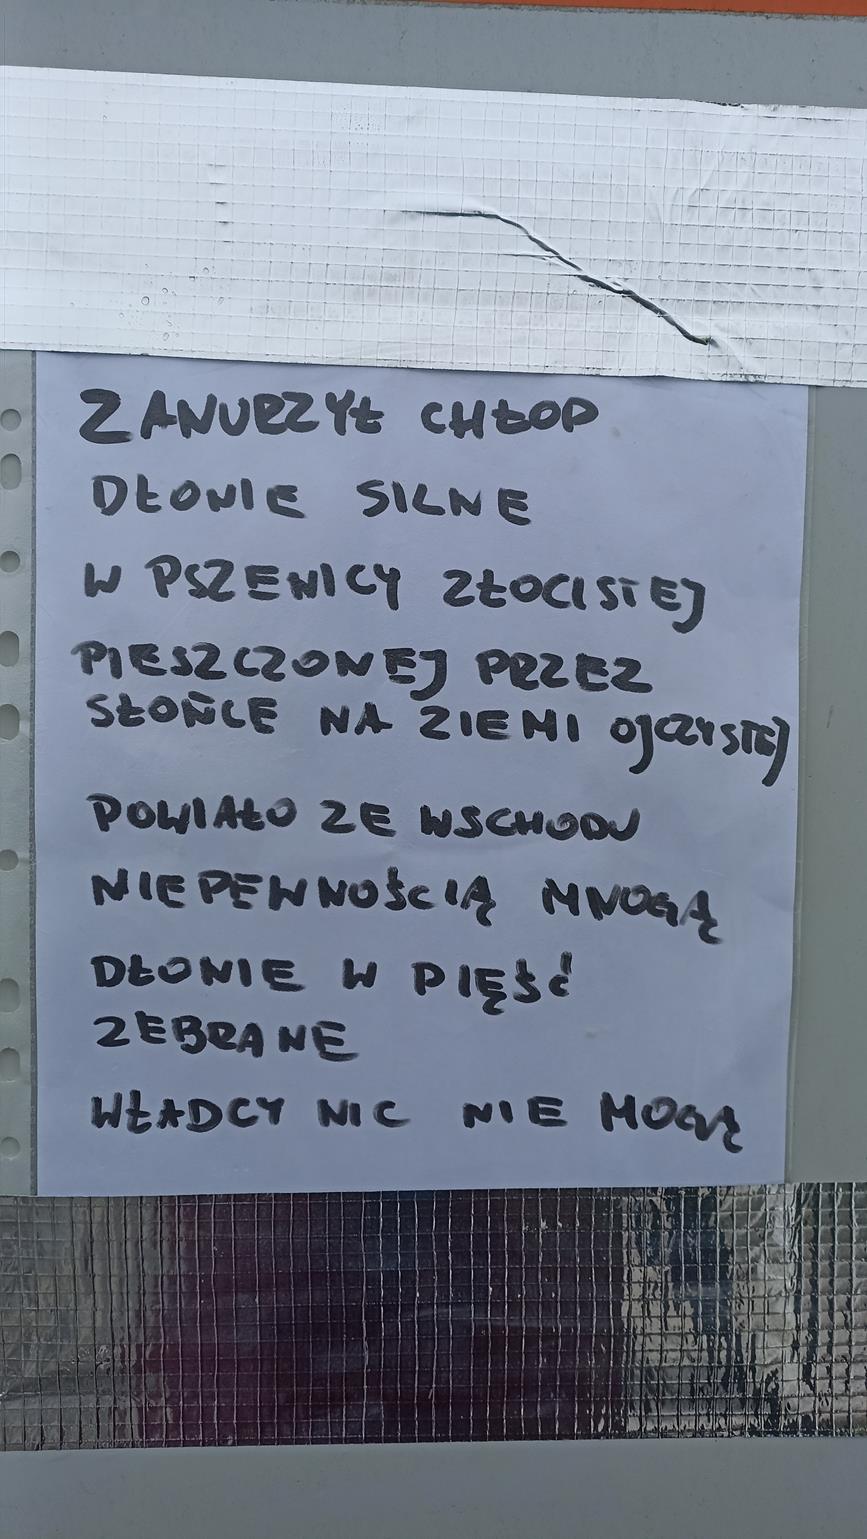 ZANURZYŁ CHŁOP
DŁONIE SILNE
W PSZENICY ZŁOCISTEJ
PIESZCZONEJ PRZEZ
SŁOŃCE NA ZIEMI OJCZYSTEJ
POWIAŁO ZE WSCHODU
NIEPEWNOŚCIĄ MNOGĄ
DŁONIE W PIĘŚĆ
ZEBRANE
WŁADCY NIC NIE MOGĄ